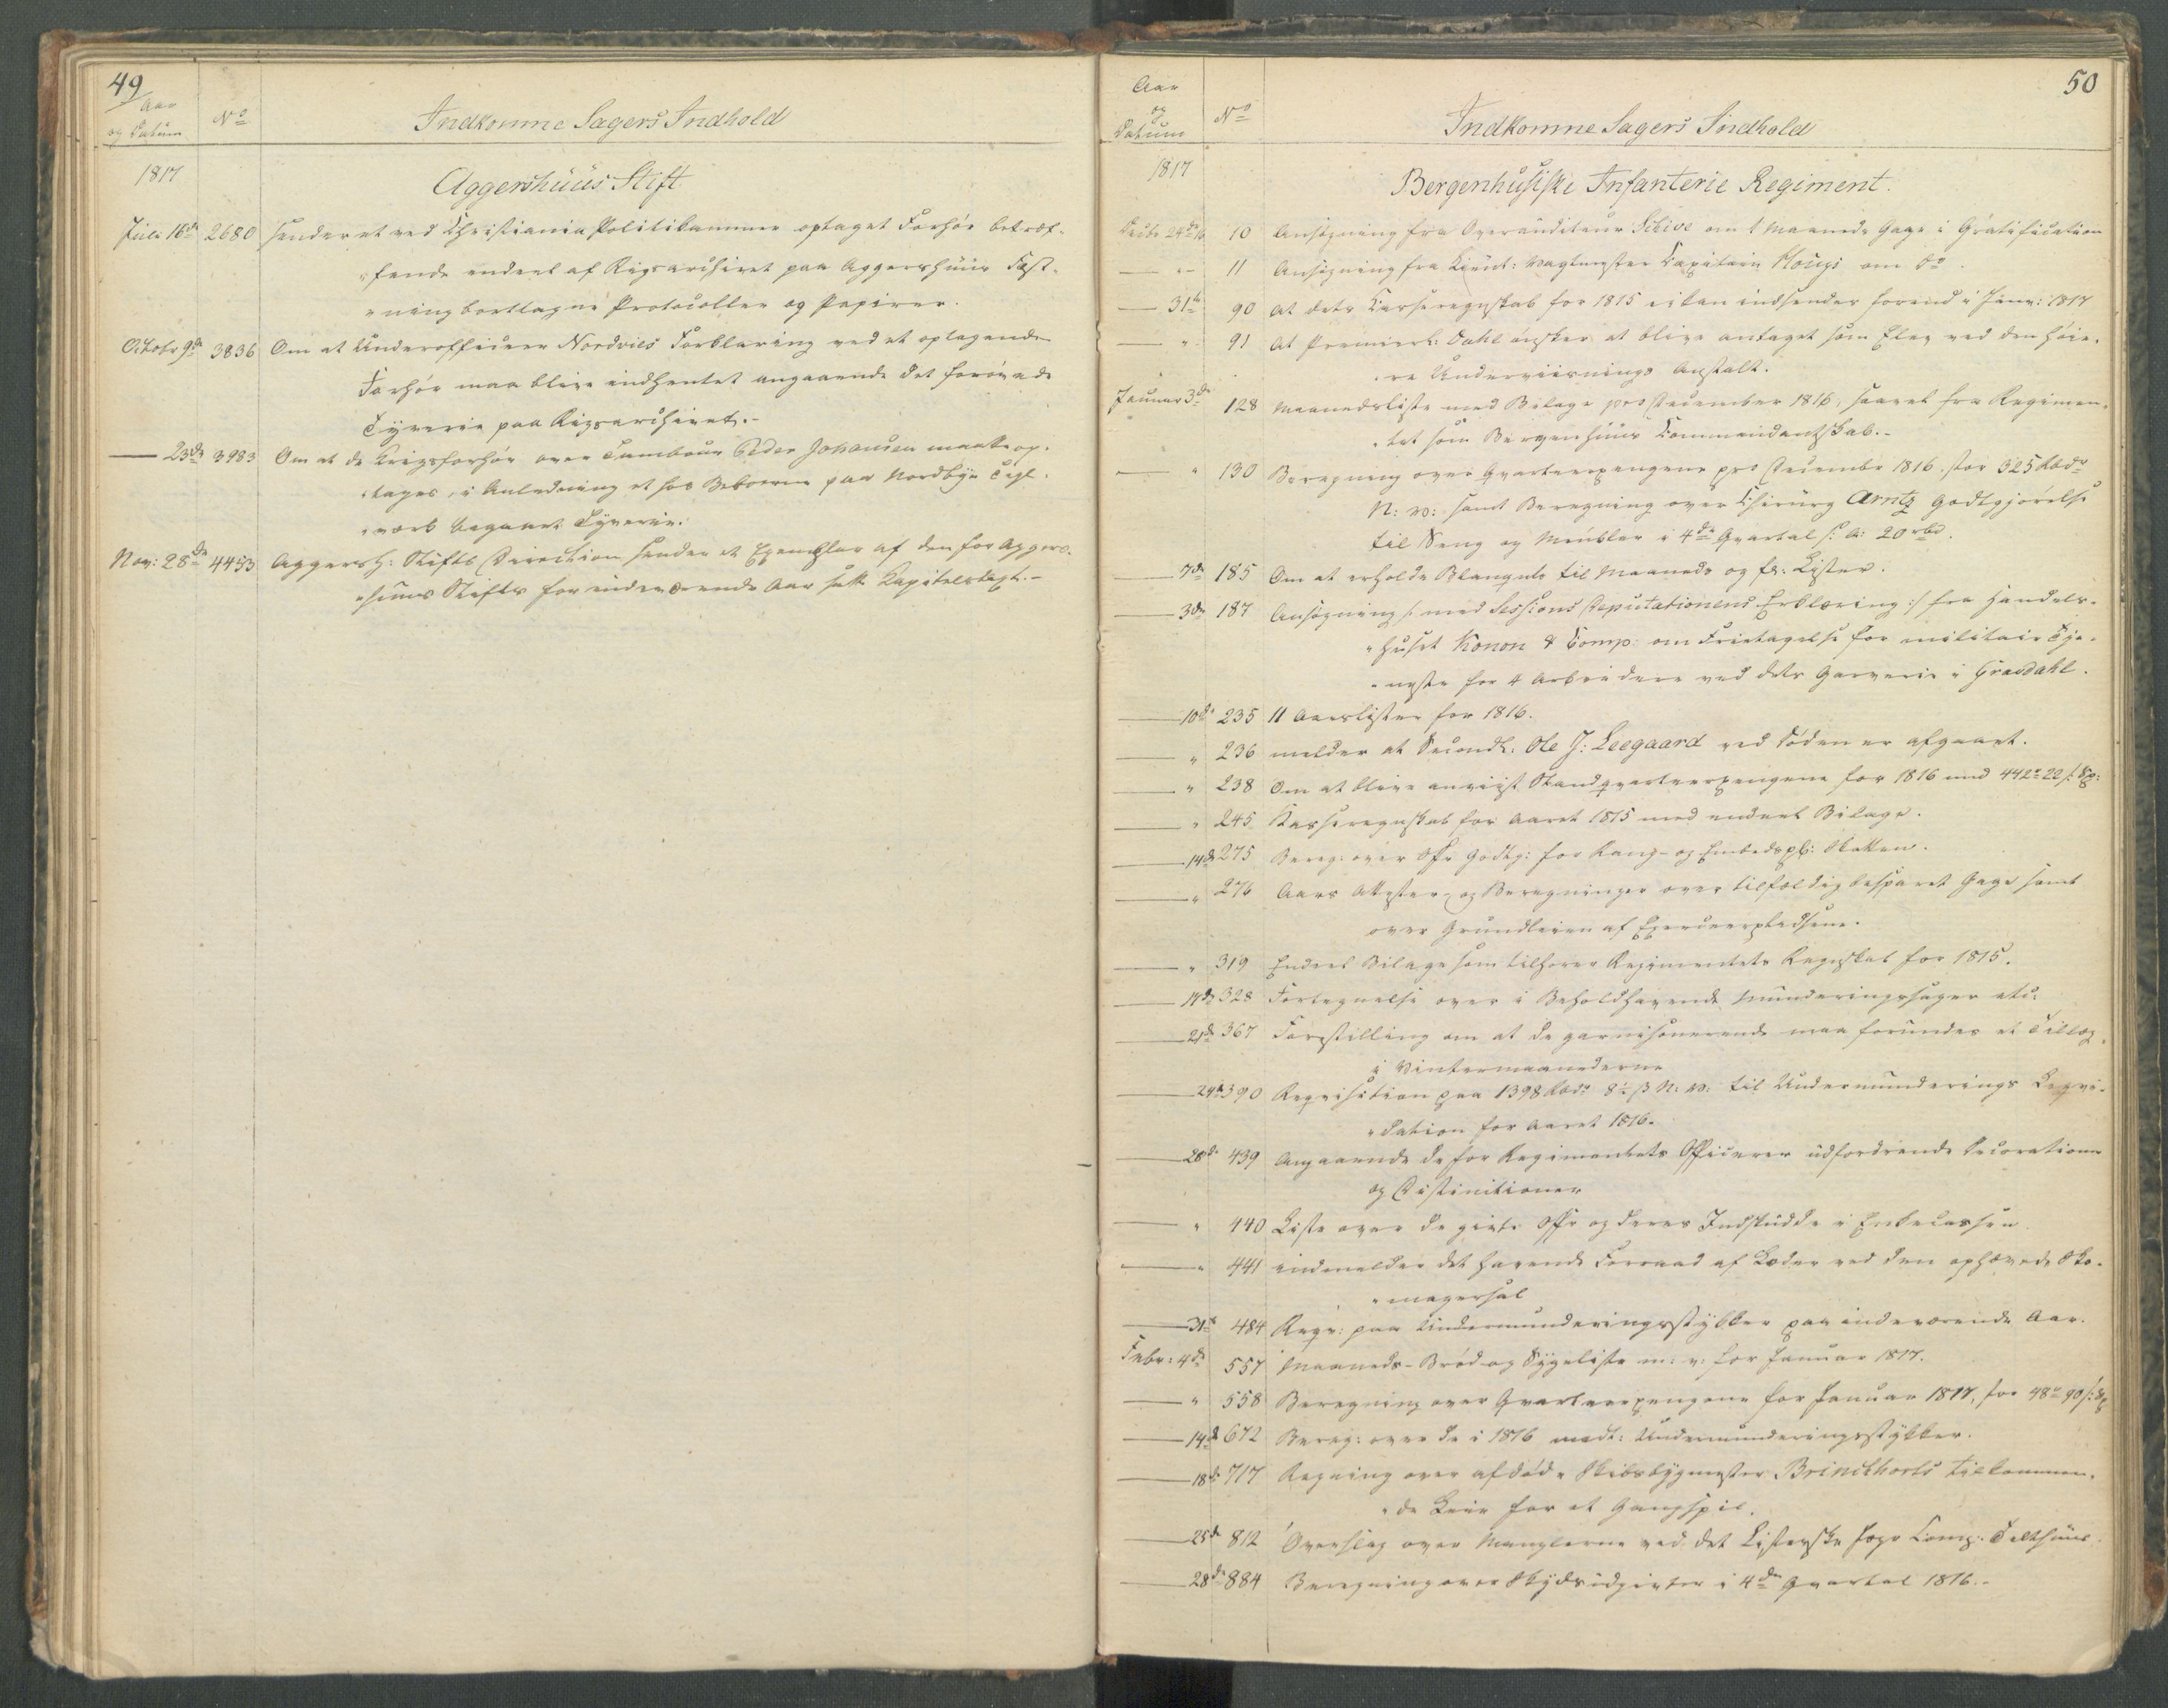 49
Aar
og Datum
No
Indkomne Sagers Indhold
1817
Aggershuus Stift
Juli 16de 2680 sender et ved Christiania Politikammer optaget Forhør betref-
"fende endeel af Rigsarchivet paa Aggershuus Fæst-
"ning borttagne Protocoller og Papirer.
Octobr 9de 3836 Om at Underofficeer Nordvies Forklaring ved et optagende
Forhør maa blive indhentet angaaende det forøvede
Tyverie paa Rigsarchivet.-
— 23de 3983 Om at de Krigsforhør over Tambour Peder Johansen maatte op-
"tages, i Anledning et hos Beboerne paa Nordbye Tegl-
"værk begaaet Tyverie.
Nov: 28de 4453 Aggersh: Stifts Direction sender et Exemplar af den for Aggers-
"huus Stifts for indeværende Aar satte Kapitelstaxt.-
50
Aar
og
Datum
No
Indkomne Sagers Indhold
1817
Bergenhusiske Infanterie Regiment.
Decbr 24de 16 10 Ansøgning fra Overauditeur Schive om 1 Maaneds Gage i Gratification
— " — 11 Ansøgning fra Vagtmester Capitain Hougs om Do.
— 31te 90 at dets Casseregnskab for 1815 ei kan indsendes førend i Janv: 1817
— " 91 At Premierl: Dahl ønsker at blive antaget som Elev ved den høie-
"re Underviisnings Anstalt.
Januar 3de 128 Maanedsliste med Bilage pro December 1816, saavel fra Regimen-
"tet som Bergenhuus Commandantskab.-
— " 130 Beregning over Qvarteerpengene pro Decembr 1816. stor 325 Rbdr
N: V: samt Beregning over Chirurg Arntz Godtgjørelse
til Seng og Meubler i 4de Qvartal f: A: 20 rbd.
— 7de 185 Om at erholde Blanqvets til Maaneds og fl: Lister.
— 3de 187 Ansøgning /: med Sessions Deputationens Erklæring :/ fra Handels-
"huset Konon & Comp: om Fritagelse for militair Tje-
"neste for 4 Arbeidere ved dets Garverie i Gravdahl.
— 10de 235 11 Aarslister for 1816.
— " 236 melder at Secondl: Ole J: Leegaard ved Døden er afgaaet.
— " 238 Om at blive anviist Standqvarteerpengene for 1816 med 442 22 s: Sp:
— " 245 Casseregnskab for Aaret 1815 med endeel Bilage.
— 14de 275 Bereg: over Off: Godtg: for Rang- og Embedspl: Skatten.
— " 276 Aars Attester og Beregninger over tilfældig besparet Gage samt
over Grundleien af Exerceerpladsene.
— " 319 Endeel Bilage som tilhører Regimentets Regnskab for 1815.
— 17de 328 Fortegnelse over i Beholdhavende Munderingssager etc.
— 21de 367 Forestilling om at de garnisonerende maa forundes et Tillæg
i Vintermaanederne
— 24de 390 Reqvisition paa 1398 Rbdr 8 ß N: V: til Undermunderings Liqvi-
"dation for Aaret 1816.
— 28de 439 Angaaende de for Regimentets Officerer udfordrende Decorationer
og Distinctioner
— " 440 Liste over de givte Offr og deres Indskudde i Enkecassen
— " 441 indmelder det havende Forraad af Læder ved den ophævede Sko-
"magersal
— 31te 484 Reqv: paa Undermunderingsstykker paa indeværende Aar.
Febr: 4de 557 Maaneds- Brød og Sygeliste m: v: for Januar 1817.
— " 558 Beregning over Qvarteerpengene for Januar 1817, for 48 90 s: Sp
— 14de 672 Bereg: over de i 1816 modt: Undermunderingsstykker.
— 18de 717 Regning over afdøde Skibsbygmester Brinchhorts tilkommen-
"de Leie for et Gangspil.
— 25de 812 Overslag over Manglerne ved det Listerske Jæger Comp: Telthuus.
— 28de 884 Beregning over Skydsudgivter i 4de Qvartal 1816.-